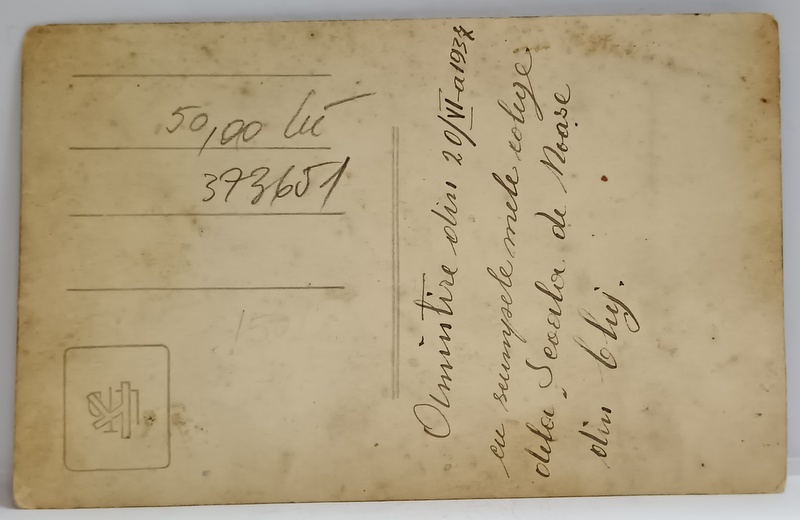 50,00 lei
373651
Amintire din 20/VI-a 1937
cu scumpele mele colege
dela Școala de Moașe
din Cluj.